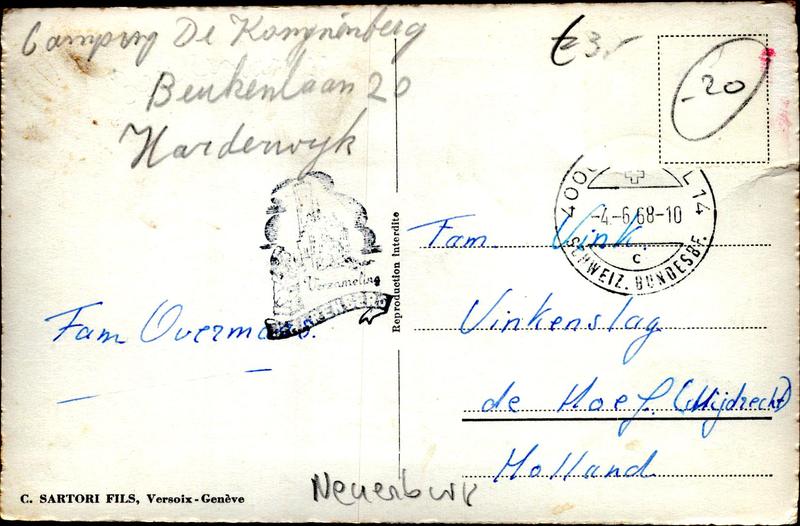 Camping De Konynenberg
Beukenlaan 20
Harderwyk
€ 3,-
-20
4000 L 14
-4.-6.68-10
C
SCHWEIZ. BUNDESBF.
Verzameling
Reproduction interdite
Fam. Vink.
Vinkenslag
de Hoef. (Mijdrecht)
Holland
Fam Overmars.
Neuerburk
C. SARTORI FILS, Versoix-Genève